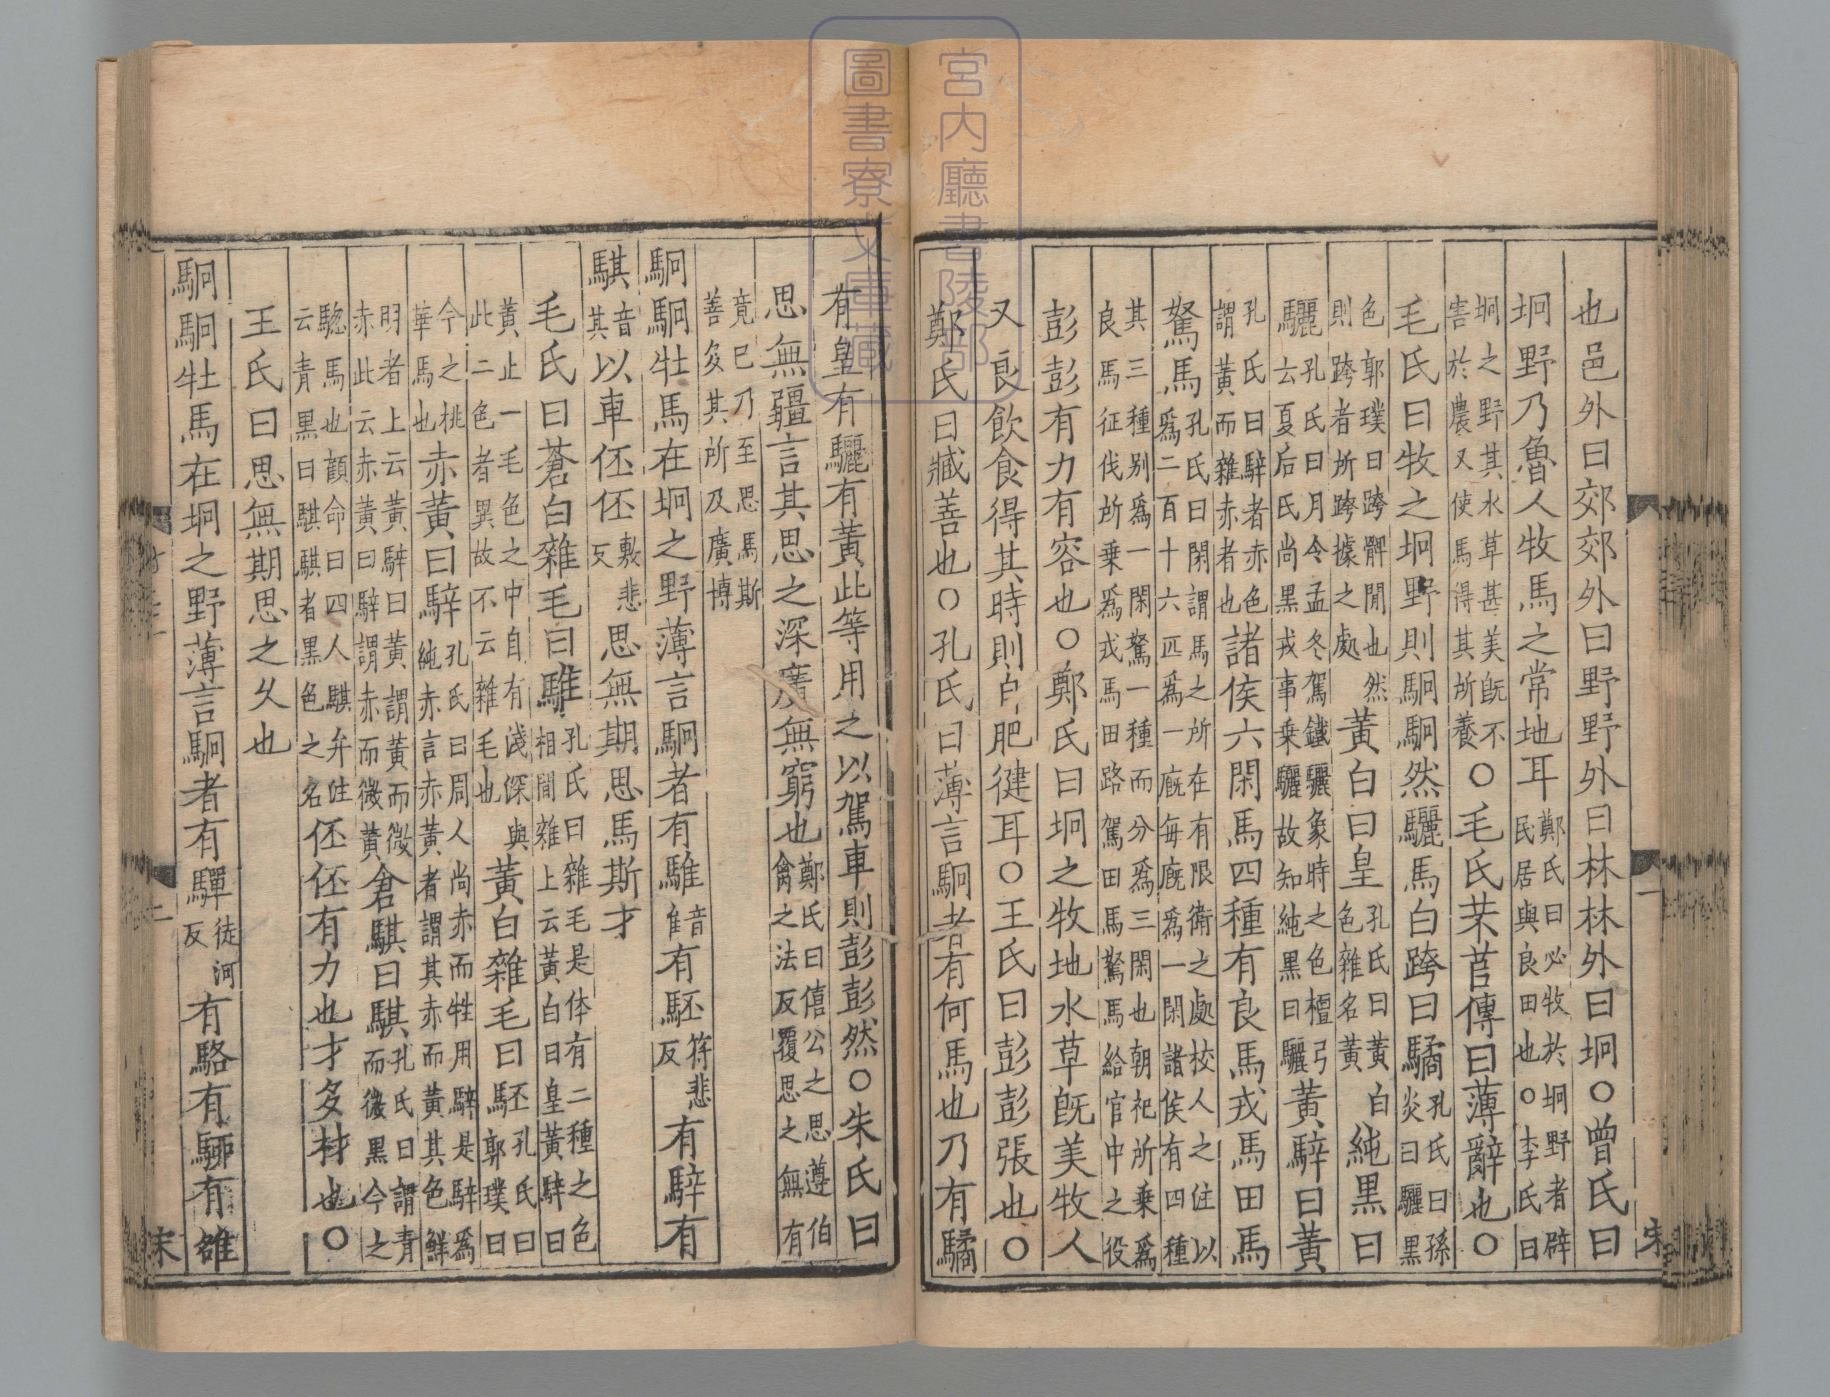 也邑外曰郊郊外曰野野外曰林林外曰坰○曾氏曰
坰野乃魯人牧馬之常地耳鄭氏曰必牧於坰野者辟民居與良田也○李氏曰
坰之野其水草甚美旣不害於農又使馬得其所養○毛氏芣苢傳曰薄辭也○
毛氏曰牧之坰野則駉駉然驪馬白跨曰驈孔氏曰孫炎曰驪黑
色郭璞曰跨髀閒也然則跨者所跨據之處黃白曰皇孔氏曰黃白色雜名黃純黑曰
驪孔氏曰月令孟冬駕鐵驪象時之色檀弓云夏后氏尚黑戎事乗驪故知純黑曰驪黃騂曰黃
孔氏曰騂者赤色謂黃而雜赤者也諸侯六閑馬四種有良馬戎馬田馬
駑馬孔氏曰閑謂馬之所在有限衛之處校人之注以爲二百十六匹爲一廐每廐爲一閑諸侯有四種
其三種别爲一閑駑一種而分爲三閑也朝祀所乗爲良馬征伐所乗爲戎馬田路駕田馬駑馬給官中之役
彭彭有力有容也○鄭氏曰坰之牧地水草旣美牧人
又良飲食得其時則自肥徤耳○王氏曰彭彭張也○
鄭氏曰臧善也○孔氏曰薄言駉者有何馬也乃有驈
有皇有驪有黃此等用之以駕車則彭彭然○朱氏曰
思無疆言其思之深廣無窮也鄭氏曰僖公之思遵伯禽之法反覆思之無有
竟已乃至思馬斯善多其所及廣博
駉駉牡馬在坰之野薄言駉者有騅音隹有駓符悲反有騂有
騏音其以車伾伾敷悲反思無期思馬斯才
毛氏曰蒼白雜毛曰騅孔氏曰雜毛是体有二種之色相間雜上云黃白曰皇黃騂曰
黃止一毛色之中自有淺深與此二色者異故不云雜毛也黃白雜毛曰駓孔氏曰郭璞曰
今之桃華馬也赤黃曰騂孔氏曰周人尚赤而牲用騂是騂爲純赤言赤黃者謂其赤而黃其色鮮
明者上云黃騂曰黃謂黃而微赤此云赤黃曰騂謂赤而微黃倉騏曰騏孔氏曰謂青而微黑今之
騘馬也顧命曰四人騏弁注云青黑曰騏騏者黑色之名伾伾有力也才多材也○
王氏曰思無期思之久也
駉駉牡馬在坰之野薄言駉者有驒徒河反有駱有駵有雒
宋
宋
宮内廳書陵部
圖書寮文庫藏